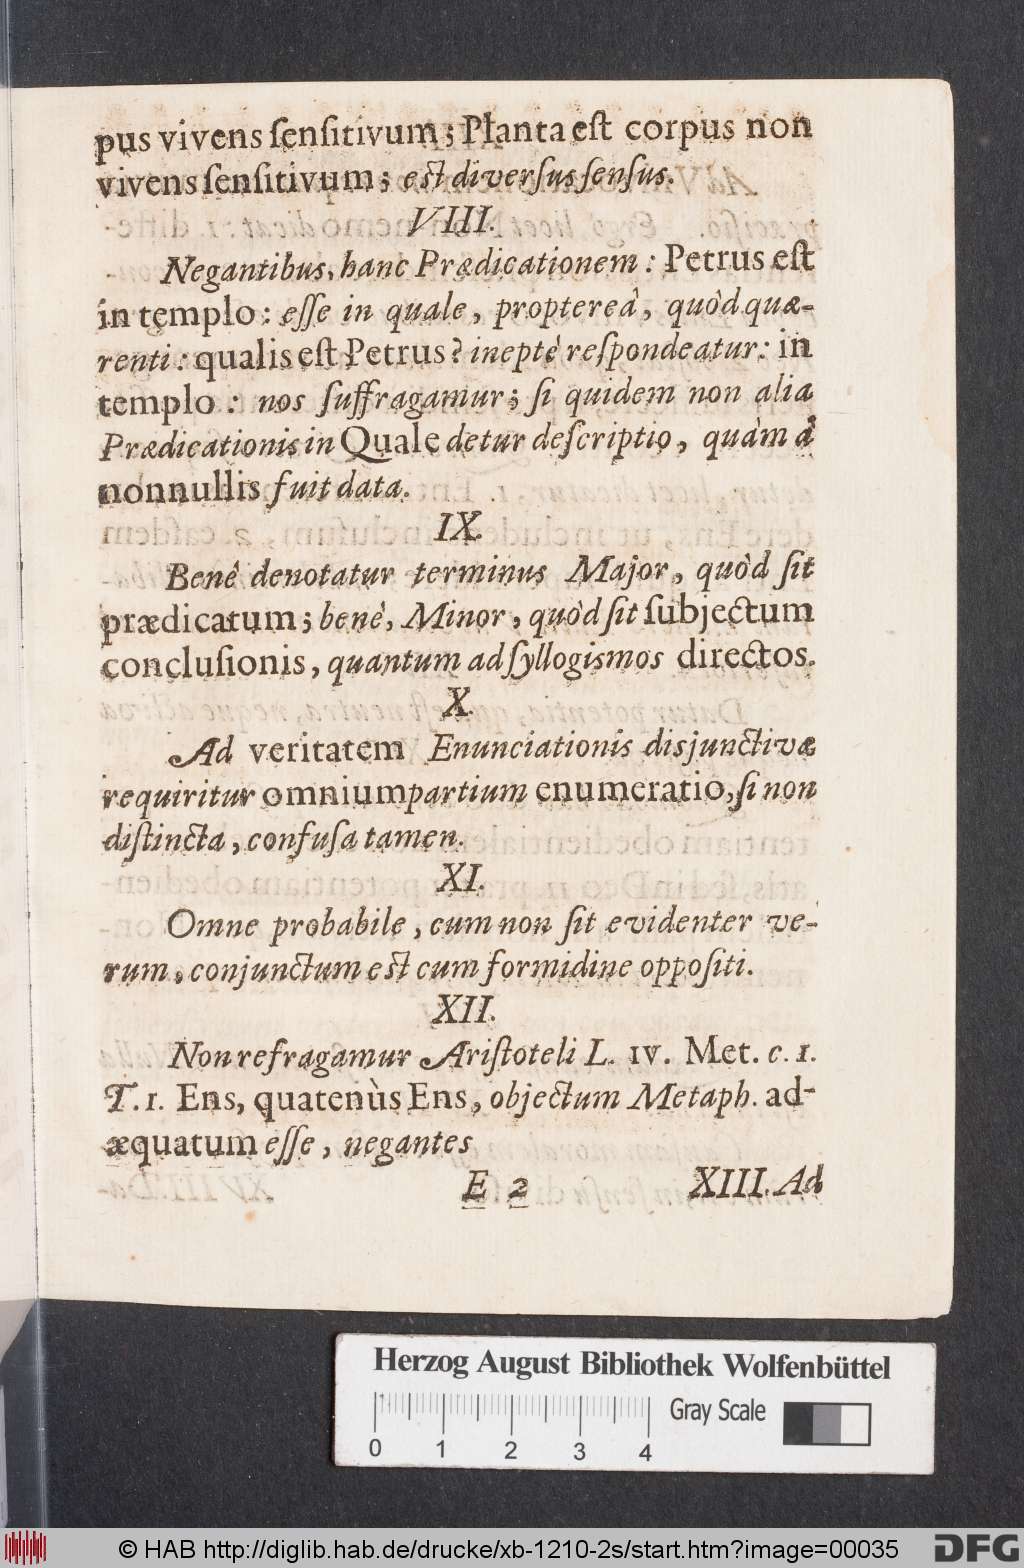 pus vivens ſenſitivum; Planta eſt corpus non
vivens ſenſitivum; eſt diverſus ſenſus.
VIII.
Negantibus, hanc Prædicationem: Petrus eſt
in templo: eſſe in quale, propterea, quòd quæ-
renti: qualis eſt Petrus? ineptè reſpondeatur: in
templo: nos ſuffragamur; ſi quidem non alia
Prædicationis in Quale detur deſcriptio, quàm à
nonnullis fuit data.
IX.
Benè denotatur terminus Major, quòd ſit
prædicatum; benè, Minor, quòd ſit ſubjectum
concluſionis, quantum ad ſyllogismos directos.
X.
Ad veritatem Enunciationis disjunctivæ
requiritur omnium partium enumeratio, ſi non
diſtincta, confuſa tamen.
XI.
Omne probabile, cum non ſit evidenter ve-
rum, conjunctum eſt cum formidine oppoſiti.
XII.
Non refragamur Ariſtoteli L. IV. Met. c. 1.
T. 1. Ens, quatenùs Ens, objectum Metaph. ad-
æquatum eſſe, negantes
E 2 XIII. Ad
Herzog August Bibliothek Wolfenbüttel
Gray Scale
0 1 2 3 4
© HAB http://diglib.hab.de/drucke/xb-1210-2s/start.htm?image=00035
DFG